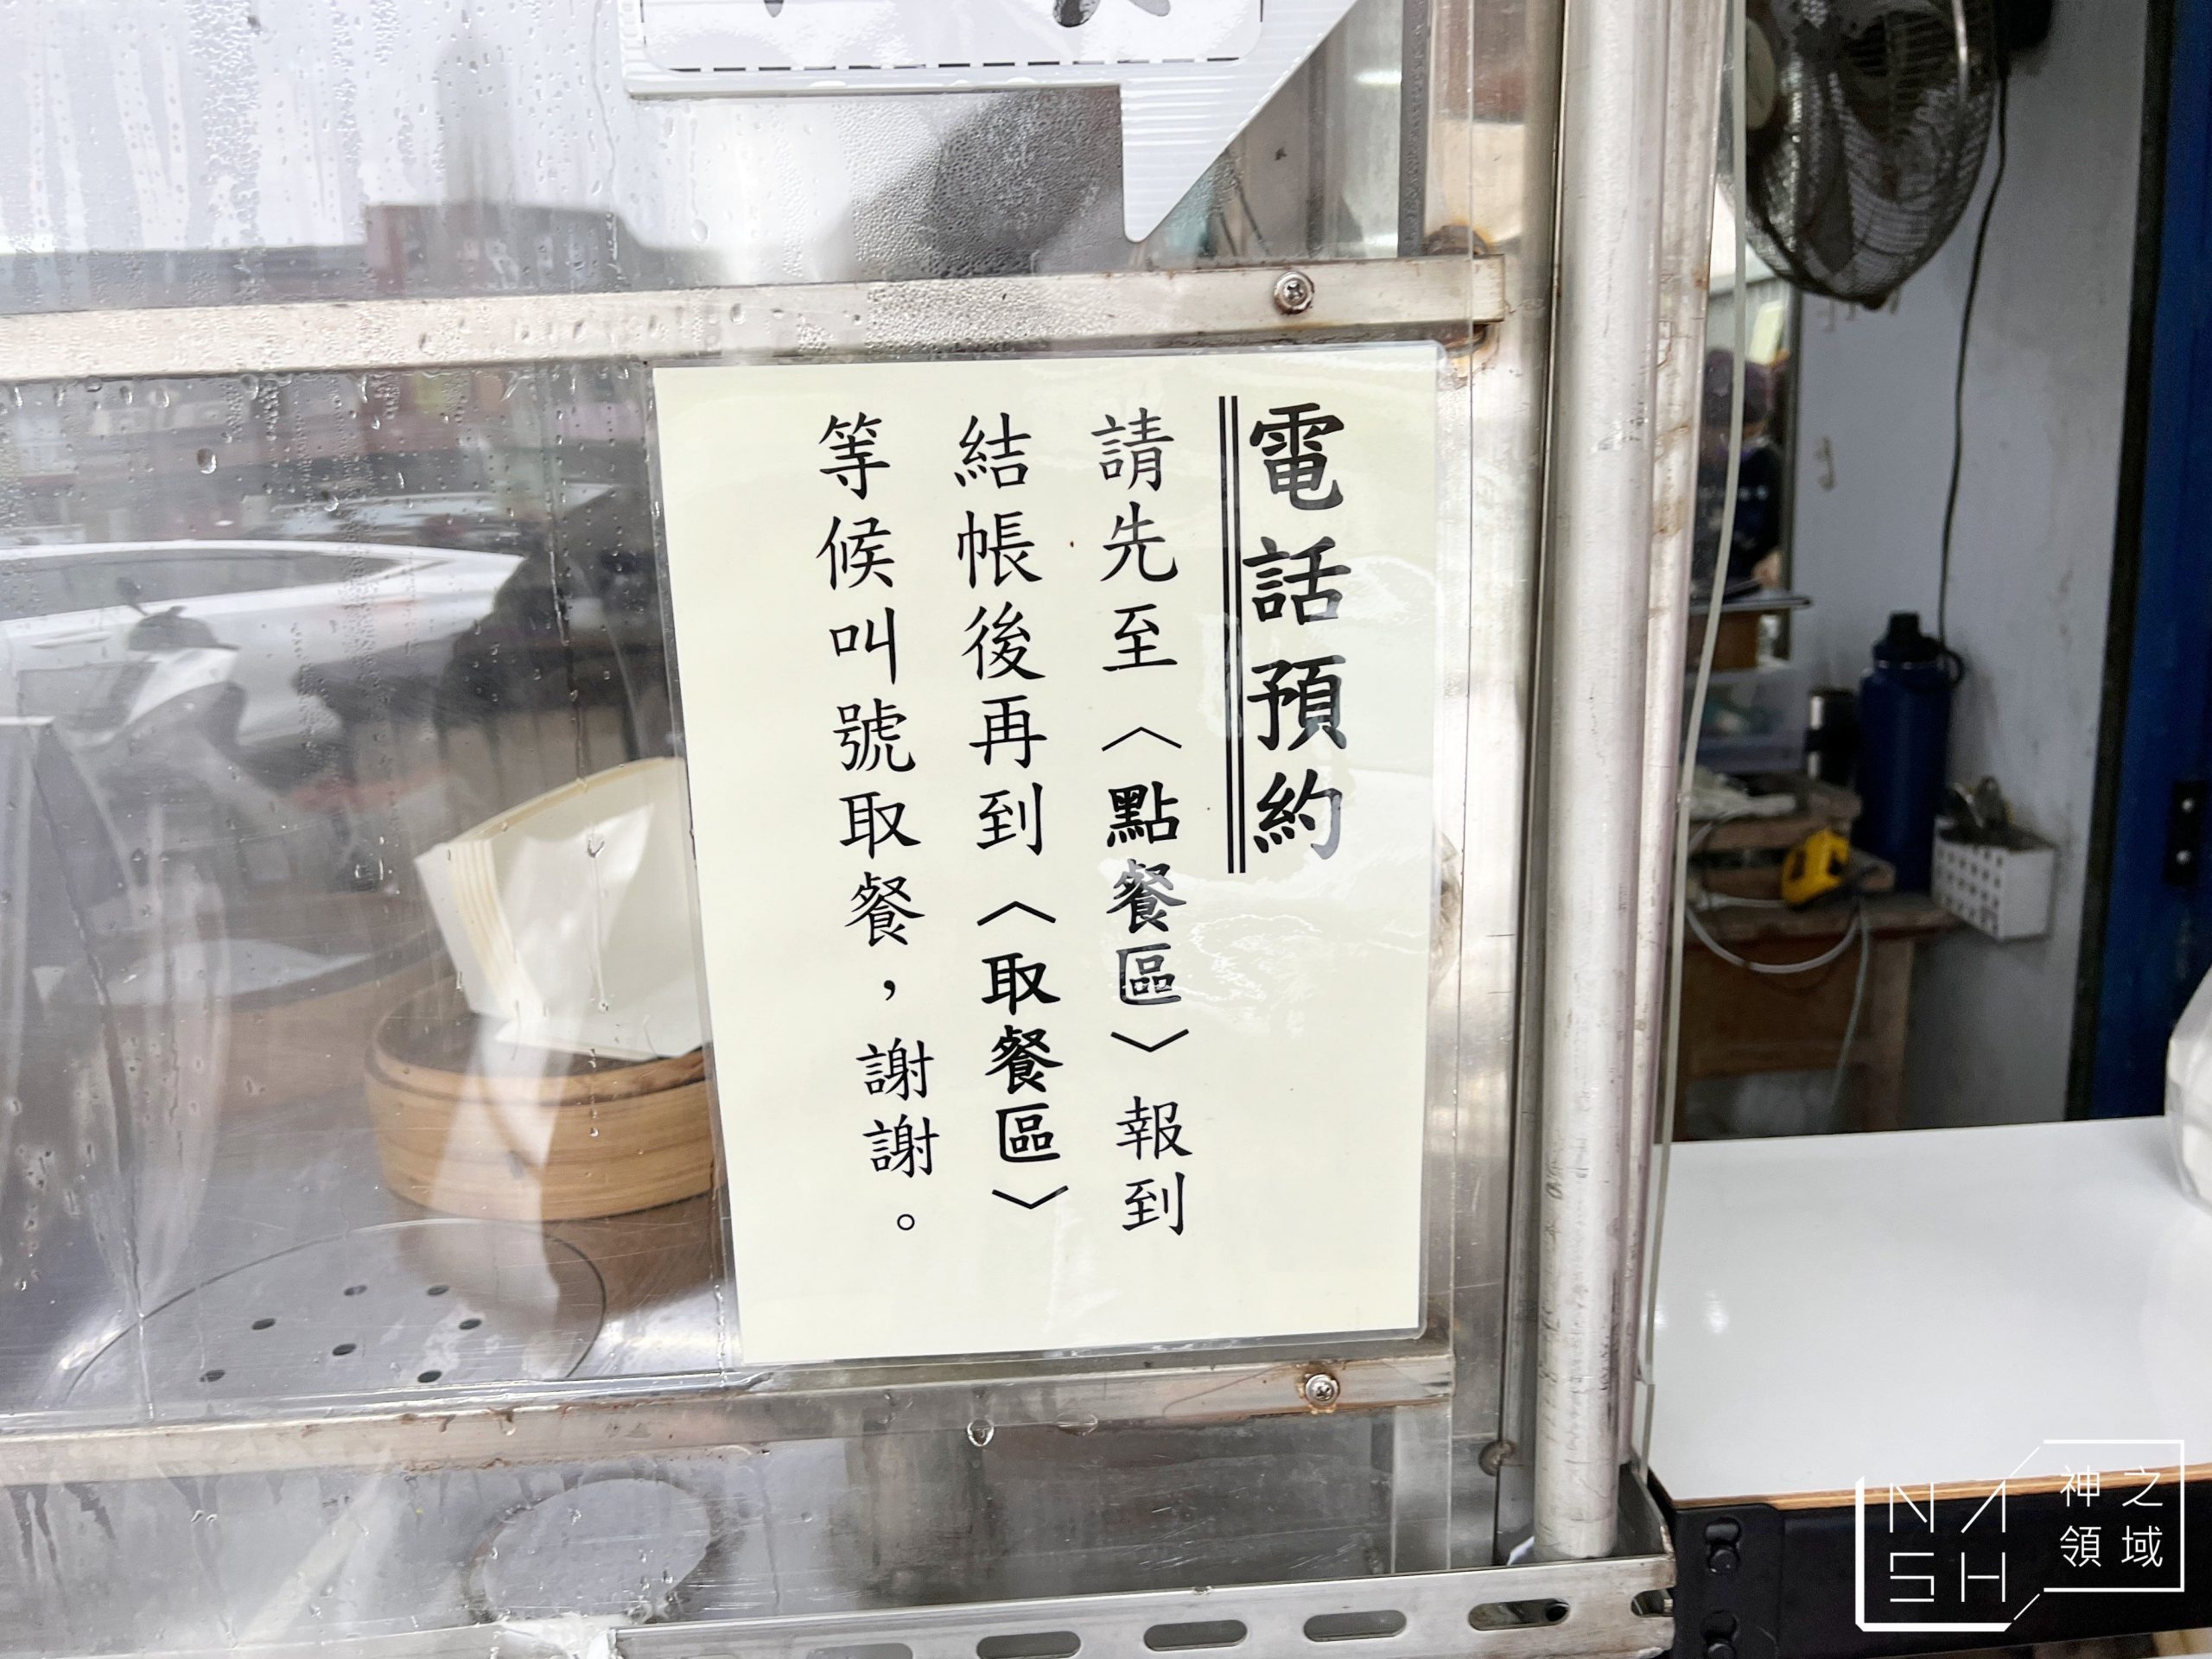 電話預約
請先至〈點餐區〉報到
結帳後再到〈取餐區〉
等候叫號取餐，謝謝。
NASH
神之
領域